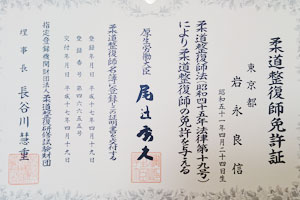 柔道整復師免許証
東京都
岩永良信
昭和五十一年四月二十四日生
柔道整復師法(昭和四十五年法律第十九号)
により柔道整復師の免許を与える
厚生労働大臣 尾辻秀久
柔道整復師名簿に登録した証明書を交付する
登録年月日 平成十七年四月十九日
交付年月日 平成十七年四月十九日
指定登録機関財団法人柔道整復研修試験財団
理事長 長谷川慧重